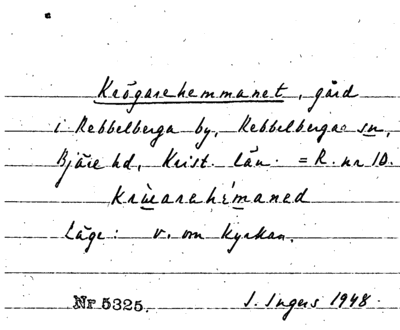 Krögarehemmanet, gård
i Rebbelberga by, Rebbelberga sn,
Bjäre hd, Krist. län. = R. nr 10.
Läge: v. om kyrkan.
Nr 5325. I. Ingers 1948.